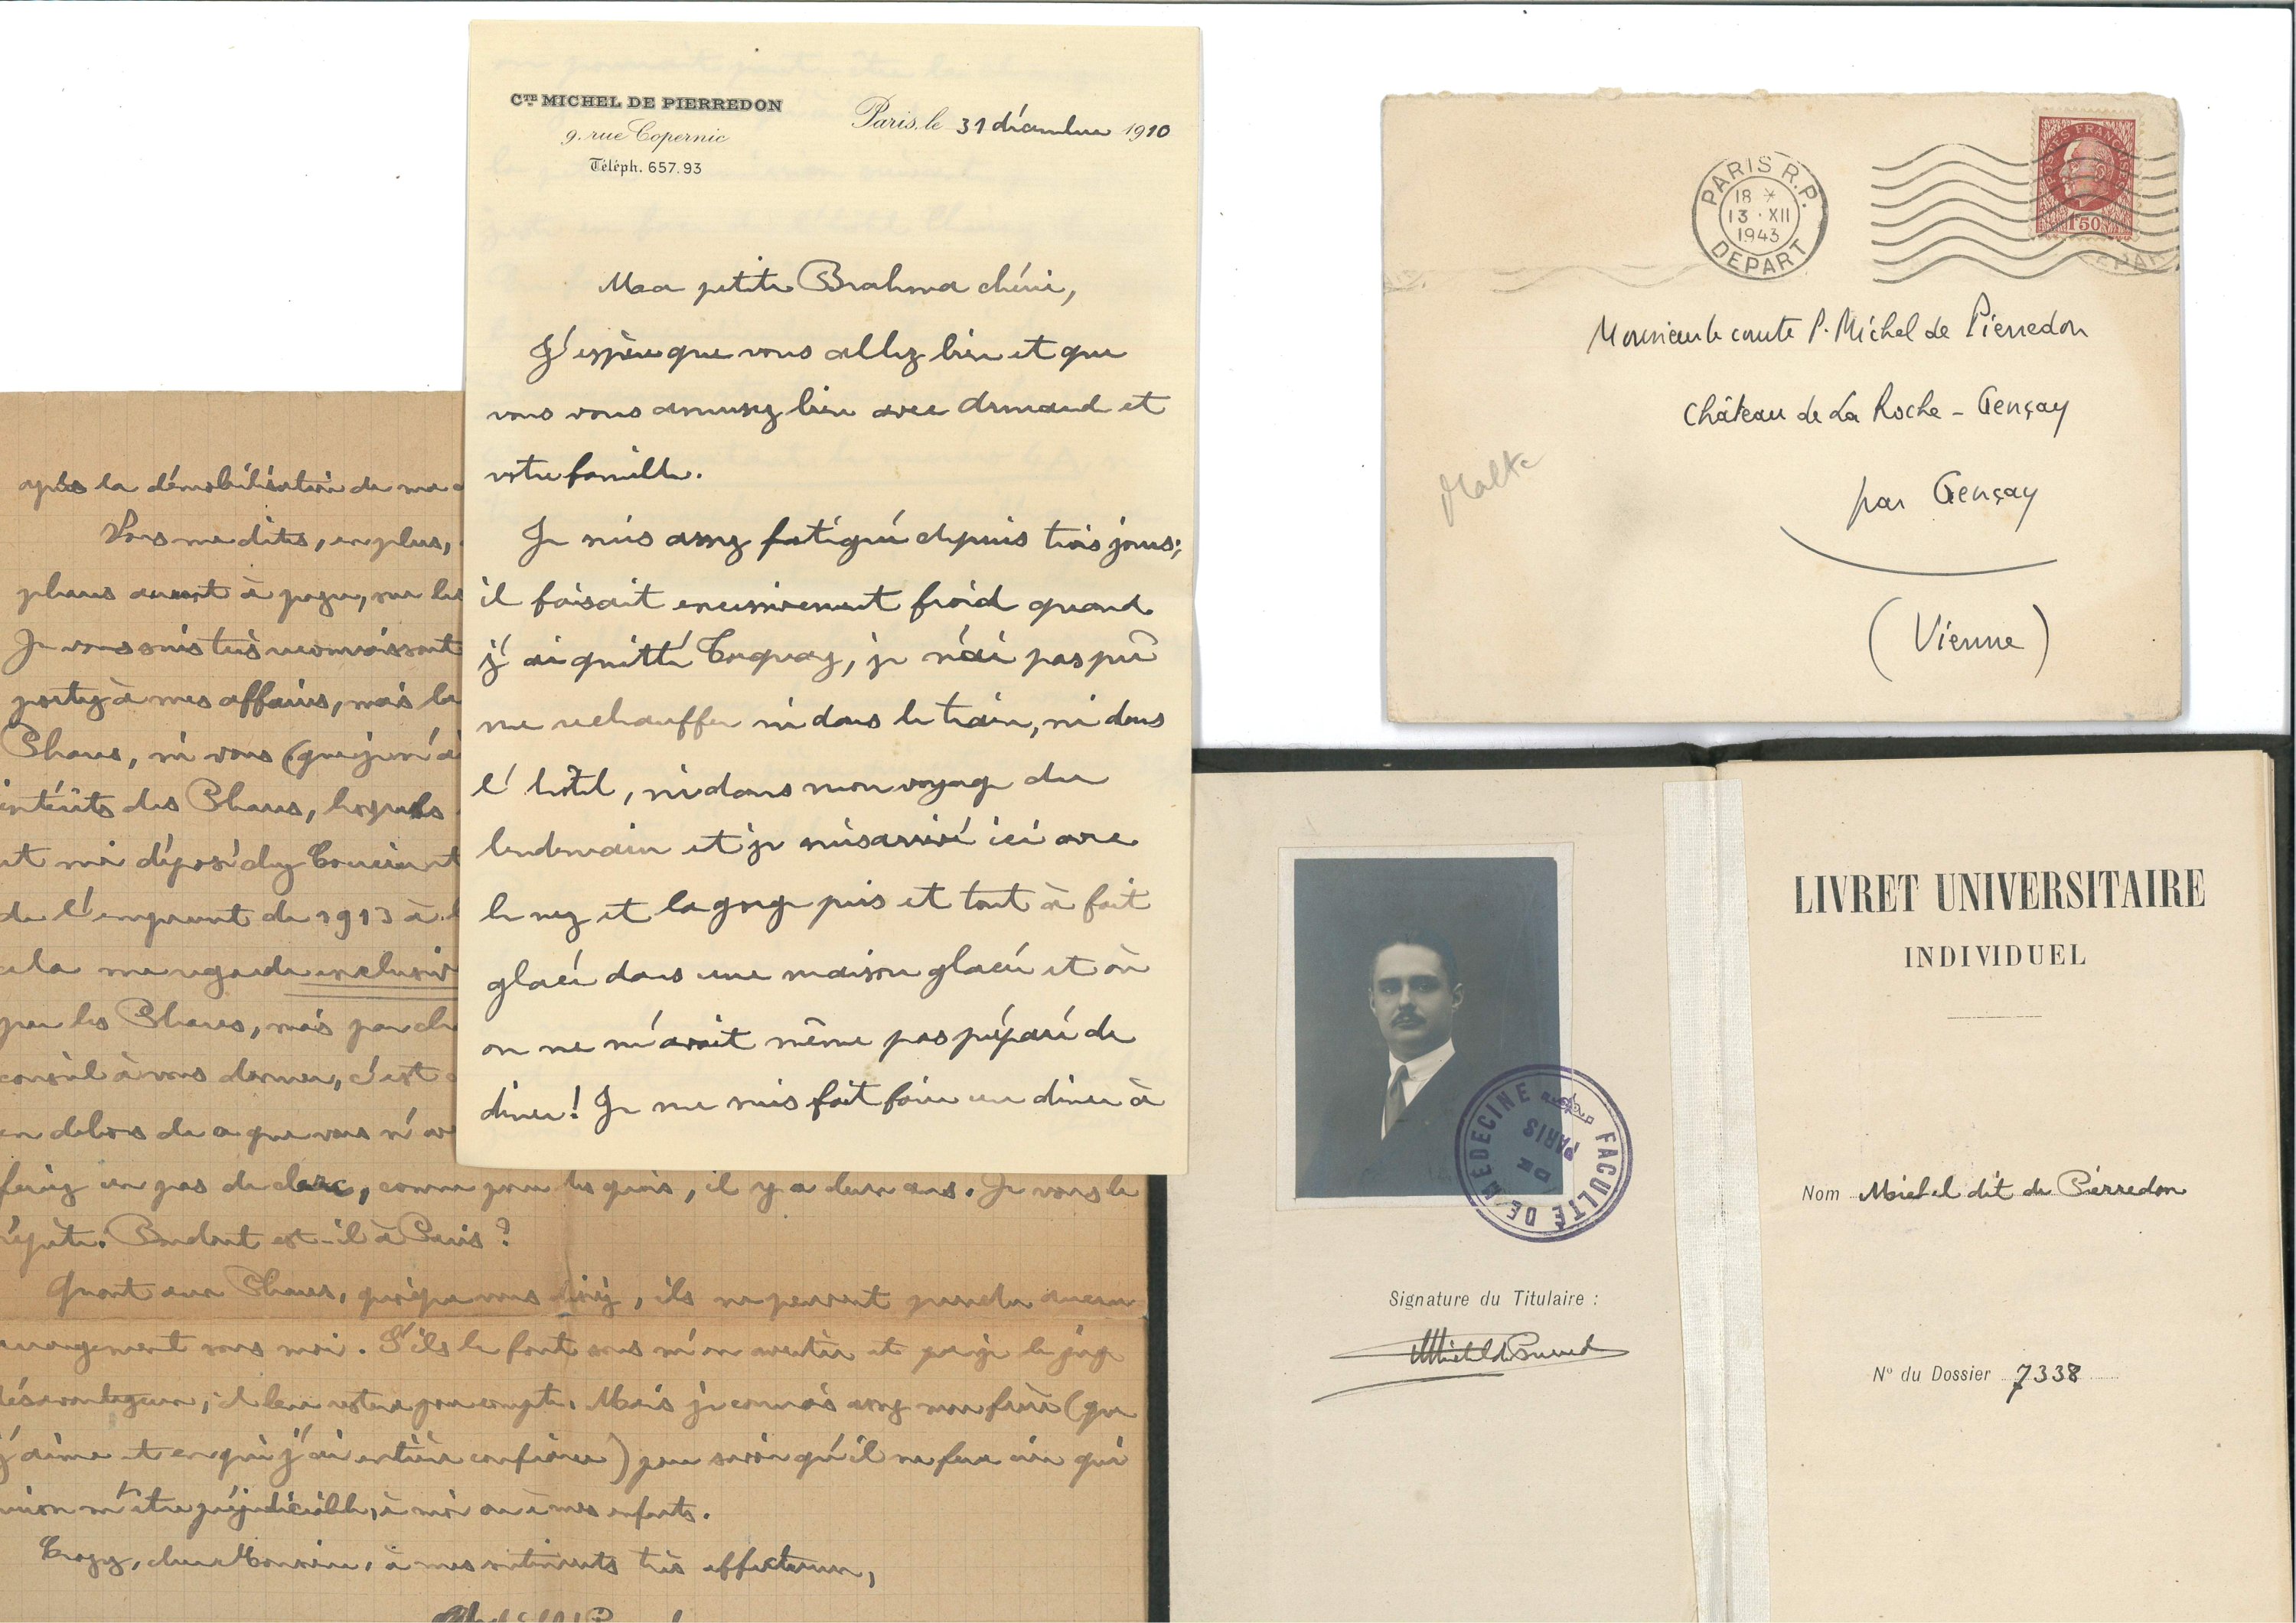 CTE MICHEL DE PIERREDON
9. rue Copernic
Téléph. 657.93
Paris, le 31 décembre 1910
Ma petite Brahma chérie,
J'espère que vous allez bien et que
vous vous amusez bien avec Armand et
votre famille.
Je suis assez fatigué depuis trois jours;
il faisait excessivement froid quand
j'ai quitté Torquay, je n'ai pas pu
me réchauffer ni dans le train, ni dans
l'hôtel, ni dans mon voyage du
lendemain et je suis arrivé ici avec
le nez et la gorge pris et tout à fait
glacé dans une maison glacée et où
on ne m'avait même pas préparé de
diner! Je me suis fait faire un diner à
après la démobilisation de ma
Vous me dites, en plus,
phares auront à payer, sur les
Je vous suis très reconnaissant
portez à mes affaires, mais les
Phares, ni vous (que je n'ai
intérêts des Phares, lesquels
et moi déposé chez
de l'emprunt de 1913 à
cela me regarde exclusiv
par les Phares, mais par
conseil à vous donner, c'est
en dehors de ce que vous n'av
feriez un pas de clerc, comme pour les quais, il y a deux ans. Je vous le
répète. Pendant est-il à Paris?
Quant aux Phares, quoique vous disiez, ils ne peuvent prendre aucun
arrangement sans moi. S'ils le font sans m'en avertir et que je le juge
désavantageux, il leur restera pour compte. Mais je connais assez mon frère (que
j'aime et en qui j'ai entière confiance) pour savoir qu'il ne fera rien qui
puisse m'être préjudiciable, à moi ou à mes enfants.
Croyez, cher Monsieur, à mes sentiments très affectueux,
PARIS R.P.
18 *
13 · XII
1943
DEPART
POSTES FRANÇAISES
1F50
Monsieur le comte P. Michel de Pierredon
Château de La Roche - Gençay
par Gençay
(Vienne)
Malte
FACULTÉ DE MÉDECINE
DE
PARIS
Signature du Titulaire :
LIVRET UNIVERSITAIRE
INDIVIDUEL
Nom Michel dit de Pierredon
N° du Dossier 7338